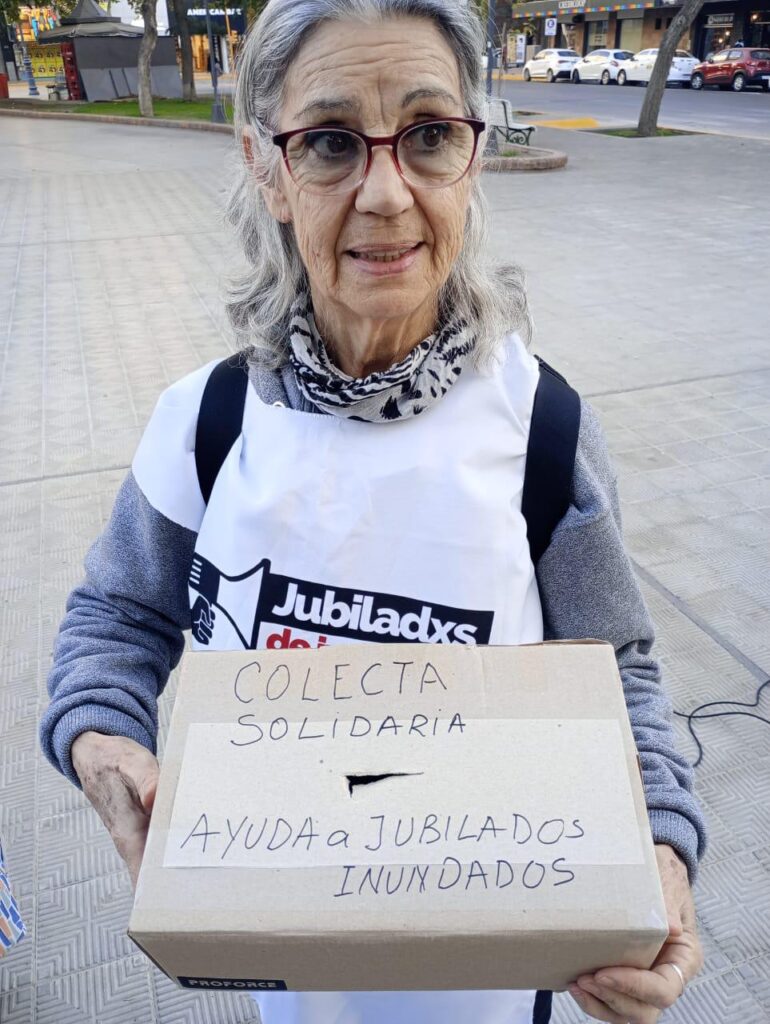 Jubiladxs
COLECTA
SOLIDARIA
AYUDA a JUBILADOS
INUNDADOS
PROFORCE